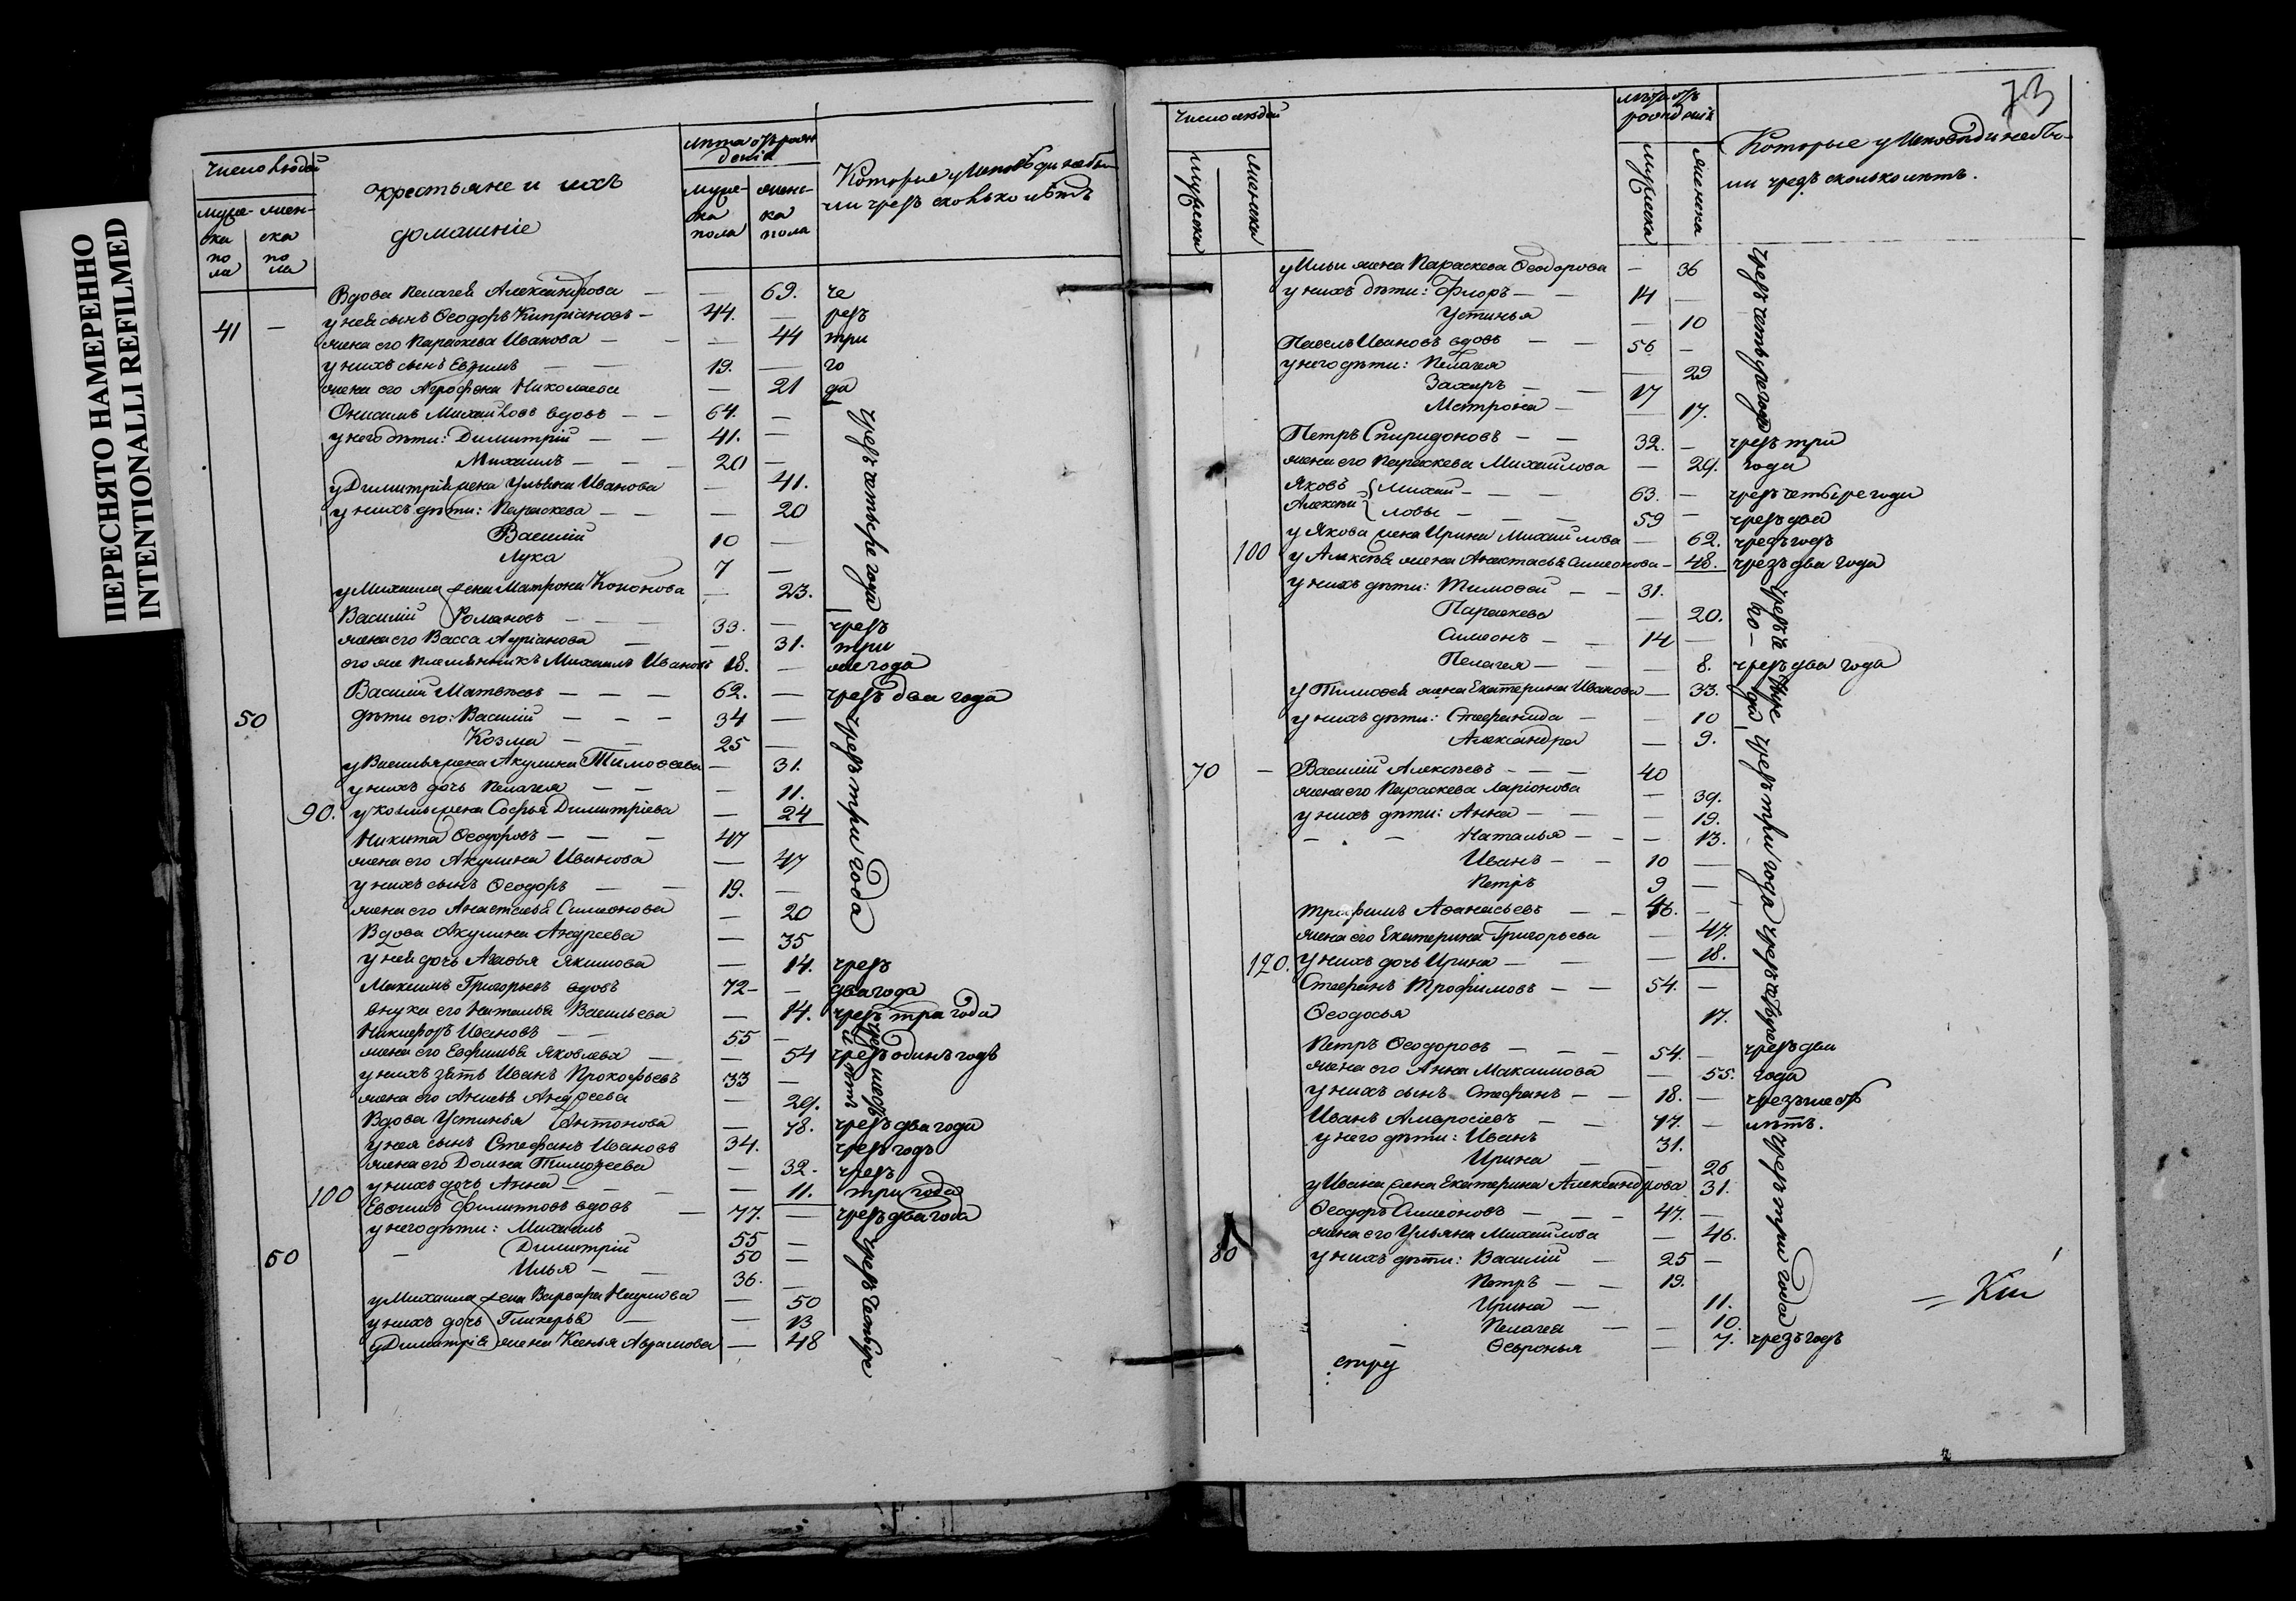 ПЕРЕСНЯТО НАМЕРЕННО
INTENTIONALLI REFILMED
Число людей
муже-
ска
по
ла
жен-
ска
по
ла
крестьяне и ихъ
домашніе
лѣта отъ рож
денія
муже-
ска
пола
женс-
ка
пола
Которые у Исповѣди не бы
ли чрезъ сколько лѣтъ
Вдова Пелагея Александрова — — 69. че
41 — у нея сынъ Ѳеодоръ Кипріановъ — 44. — резъ
жена его Параскева Иванова — — 44 три
у нихъ сынъ Евѳимъ — 19. — го
жена его Агрофена Николаева — 21 да
Онисимъ Михайловъ вдовъ — — 64. —
у него дѣти: Димитрій — — 41. —
Михаилъ — — 20 —
у Димитрія жена Ульяна Иванова — 41.
у нихъ дѣти: Параскева — — 20
Василій 10 —
Лука 7 —
чрезъ четыре года
у Михаила жена Матрона Кононова — 23.
Василій Романовъ — — 33. — чрезъ
жена его Васса Адріанова — — 31. три
его же племянникъ Михаилъ Ивановъ 18. — же года
Василій Матвѣевъ — — — 62. — чрезъ два года
50 дѣти его: Василій — — — 34 —
Козма — — 25 —
у Василья жена Акулина Тимоѳеева — 31.
у нихъ дочь Пелагея — — — 11.
90. у Козмы жена Софья Димитріева — 24
Никита Ѳеодоровъ — — — 47
жена его Акулина Иванова — 47
у нихъ сынъ Ѳеодоръ — — 19. —
жена его Анастасья Симеонова — 20
чрезъ три года
Вдова Акулина Андреева — 35
у ней дочь Агаѳья Якимова — 14. чрезъ
Максимъ Григорьевъ вдовъ 72 — — два года
внука его Наталья Васильева — 14. чрезъ три года
Никифоръ Ивановъ — — 55 —
жена его Евфимья Яковлева — — 54 чрезъ одинъ годъ
у нихъ зять Иванъ Прокофьевъ 33 —
жена его Анисья Андреева — 29.
чрезъ шесть
лѣтъ
Вдова Устинья Антонова — 78. чрезъ два года
у нея сынъ Стефанъ Ивановъ 34. чрезъ годъ
жена его Домна Тимоѳеева — 32. чрезъ
100 у нихъ дочь Анна — — — 11. три года
Евѳимъ Филиповъ вдовъ — 77. — чрезъ два года
у него дѣти: Михаилъ 55 —
60 — Димитрій 50 —
Илья — — 36. —
у Михаила жена Варвара Наумова — 50
у нихъ дочь Гликерья — — 13
у Димитрія жена Ксенья Аврамова — 48
чрезъ четыре
73
Число людей
мужеска
женска
лѣта отъ
рожденія
мужеска
женска
Которые у Исповѣди не бы-
ли чрезъ сколько лѣтъ.
у Ильи жена Параскева Ѳеодорова — 36
у нихъ дѣти: Флоръ — — 14 —
Устинья — 10
Павелъ Ивановъ вдовъ — — 56 —
у него дѣти: Пелагея — 29
Захаръ — — 17
Матрона — — 17.
чрезъ четыре года
Петръ Спиридоновъ — — 32. — чрезъ три
жена его Параскева Михайлова — 29. года
Яковъ } Михай — — — 63. — чрезъ четыре года
Алексѣй } ловы — — — 59 — чрезъ два
у Якова жена Ирина Михайлова — 62. чрезъ годъ
100 у Алексѣя жена Анастасья Симеонова — 48. чрезъ два года
у нихъ дѣти: Тимоѳей — — 31.
Параскева — 20.
Симеонъ — — 14 —
Пелагея — — — 8. чрезъ два года
у Тимоѳея жена Екатерина Иванова — 33.
у нихъ дѣти: Стефанида — — 10
Александра — 9.
70 — Василій Алексѣевъ — — — 40
жена его Параскева Ларіонова — 39.
у нихъ дѣти: Анна — — — 19.
— — Наталья — — — 13.
Иванъ — — 10 —
Петръ 9 —
чрезъ три года
Трофимъ Аѳанасьевъ — — 46. —
жена его Екатерина Григорьева — 47.
120. у нихъ дочь Ирина — — — 18.
Стефанъ Трофимовъ — — 54. —
Ѳеодосья 17.
чрезъ четыре
Петръ Ѳеодоровъ — — — 54. — чрезъ два
жена его Анна Максимова — 55. года
у нихъ сынъ Стефанъ — — 18. — чрезъ шесть
Иванъ Амвросіевъ — — 77. — лѣтъ.
у него дѣти: Иванъ 31.
Ирина — — 26
у Ивана жена Екатерина Александрова 31.
Ѳеодоръ Симеоновъ — — — 47. —
жена его Ульяна Михайлова — 46.
80 у нихъ дѣти: Василій — 25 —
Петръ — — 19.
Ирина — 11.
Пелагея — — 10.
чрезъ три года
— Ѳевронья — 7. чрезъ годъ